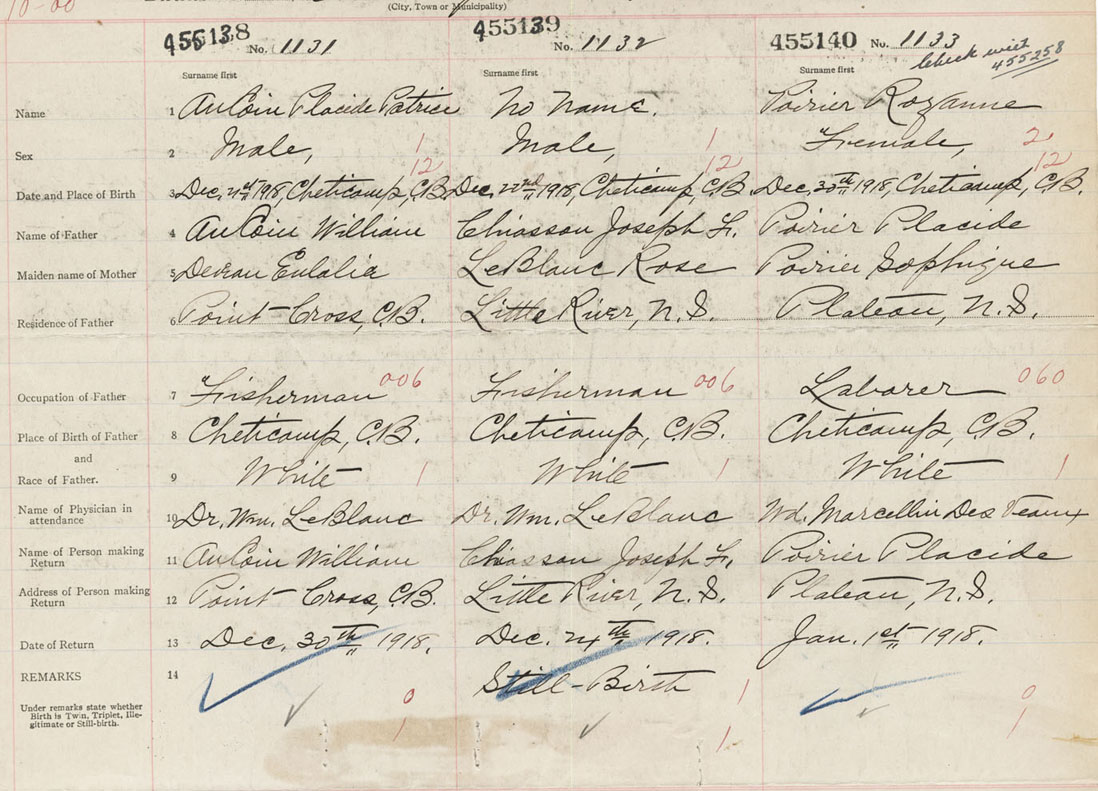 10-00
(City, Town or Municipality)
455138 No. 1131 455139 No. 1132 455140 No. 1133 Check with 455258
Surname first Surname first Surname first
Name 1 AuCoin Placide Patrice No Name. Poirier Rozanne
Sex 2 Male, 1 Male, 1 Female, 2
12 12 12
Date and Place of Birth 3 Dec. 21st 1918, Cheticamp, C.B. Dec. 22nd 1918, Cheticamp, C.B. Dec. 30th 1918, Cheticamp, C.B.
Name of Father 4 AuCoin William Chiasson Joseph Fr. Poirier Placide
Maiden name of Mother 5 Deveau Eulalia LeBlanc Rose Poirier Sophique
Residence of Father 6 Point Cross, C.B. Little River, N.S. Plateau, N.S.
Occupation of Father 7 Fisherman 006 Fisherman 006 Laborer 060
Place of Birth of Father 8 Cheticamp, C.B. Cheticamp, C.B. Cheticamp, C.B.
and
Race of Father. 9 White 1 White 1 White 1
Name of Physician in attendance 10 Dr. Wm. LeBlanc Dr. Wm. LeBlanc Wd. Marcellin Des Veaux
Name of Person making Return 11 AuCoin William Chiasson Joseph Fr. Poirier Placide
Address of Person making Return 12 Point Cross, C.B. Little River, N.S. Plateau, N.S.
Date of Return 13 Dec. 30th 1918. Dec. 24th 1918. Jan. 1st 1918.
REMARKS 14 Still-Birth 1
Under remarks state whether Birth is Twin, Triplet, Illegitimate or Still-birth. 0 0
1 1 1